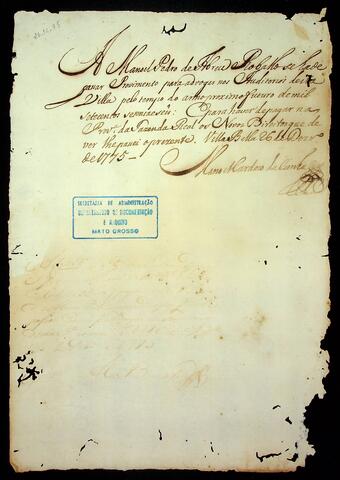 A Manoel Pedro de Abreu Rebello se ha de
passar Provimento para advogar nos Auditorios desta
Villa pelo tempo do anno proximo futuro de mil
setecentos setenta e seis: E para haver de pagar na
Prov.ª da Fazenda Real os Novos Direitos que de
ver lhe pasei o prezente. Villa Bella 26 de Dezr.º
de 1775
Manoel Cardozo da Cunha
SECRETARIA DE ADMINISTRAÇÃO
DEPARTAMENTO DE DOCUMENTAÇÃO
E ARQUIVO
MATO GROSSO